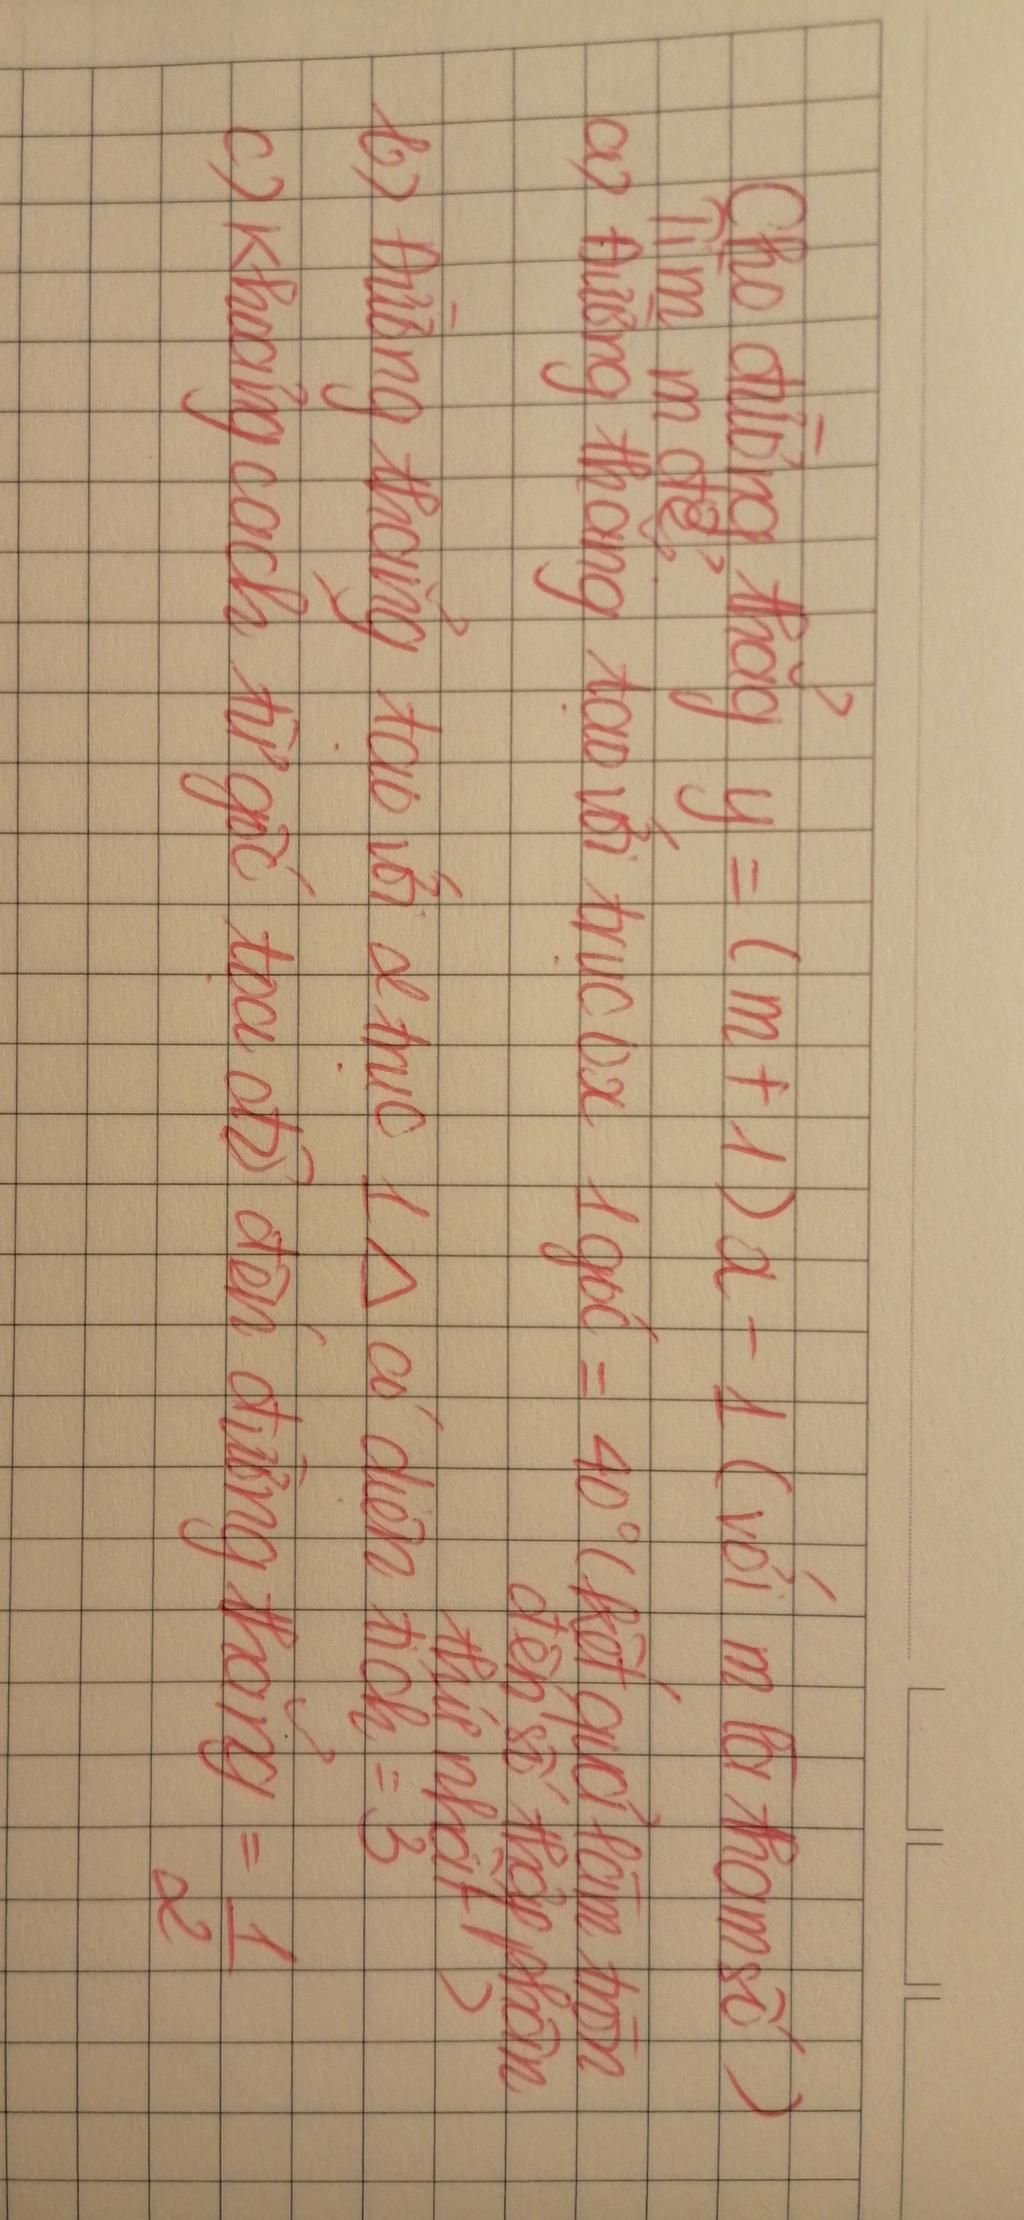 Cho đường thẳg y = (m + 1)x - 1 (với m là tham số)
Tìm m để
a) Đường thẳng tạo với trục Ox 1 góc = 40° (kết quả làm tròn
đến số thập phân
thứ nhất)
b) Đường thẳng tạo với 2 trục 1 △ có diện tích = 3
c) Khoảng cách từ gốc tọa độ đến đường thẳng = 1/2